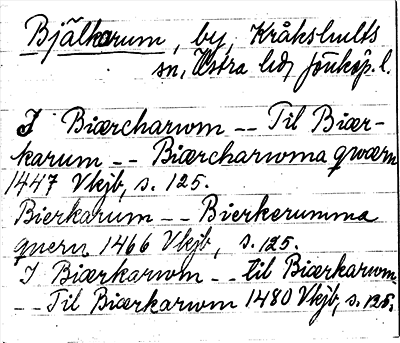 Bjälkarum, by, Kråkshults
sn, Östra hd, Jönköp. l.
I Biærcharwm -- Til Biær-
karum -- Biærcharwma qwærn
1447 Vkjb, s. 125.
Bierkarum -- Bierkerumma
quern 1466 Vkjb, s. 125.
I Biærkarwm -- til Biærkarwm
-- Til Biærkarwm 1480 Vkjb, s. 125.